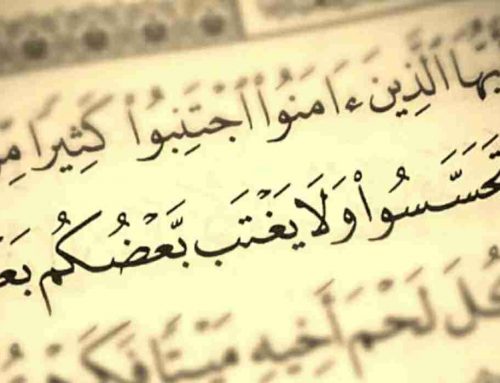 يُّهَا ٱلَّذِينَ ءَامَنُوا۟ ٱجْتَنِبُوا۟ كَثِيرًا مِّنَ
تَجَسَّسُوا۟ وَلَا يَغْتَب بَّعْضُكُم بَعْ
كُلَ لَحْمَ أَخِيهِ مَيْتًا فَكَرِهْ